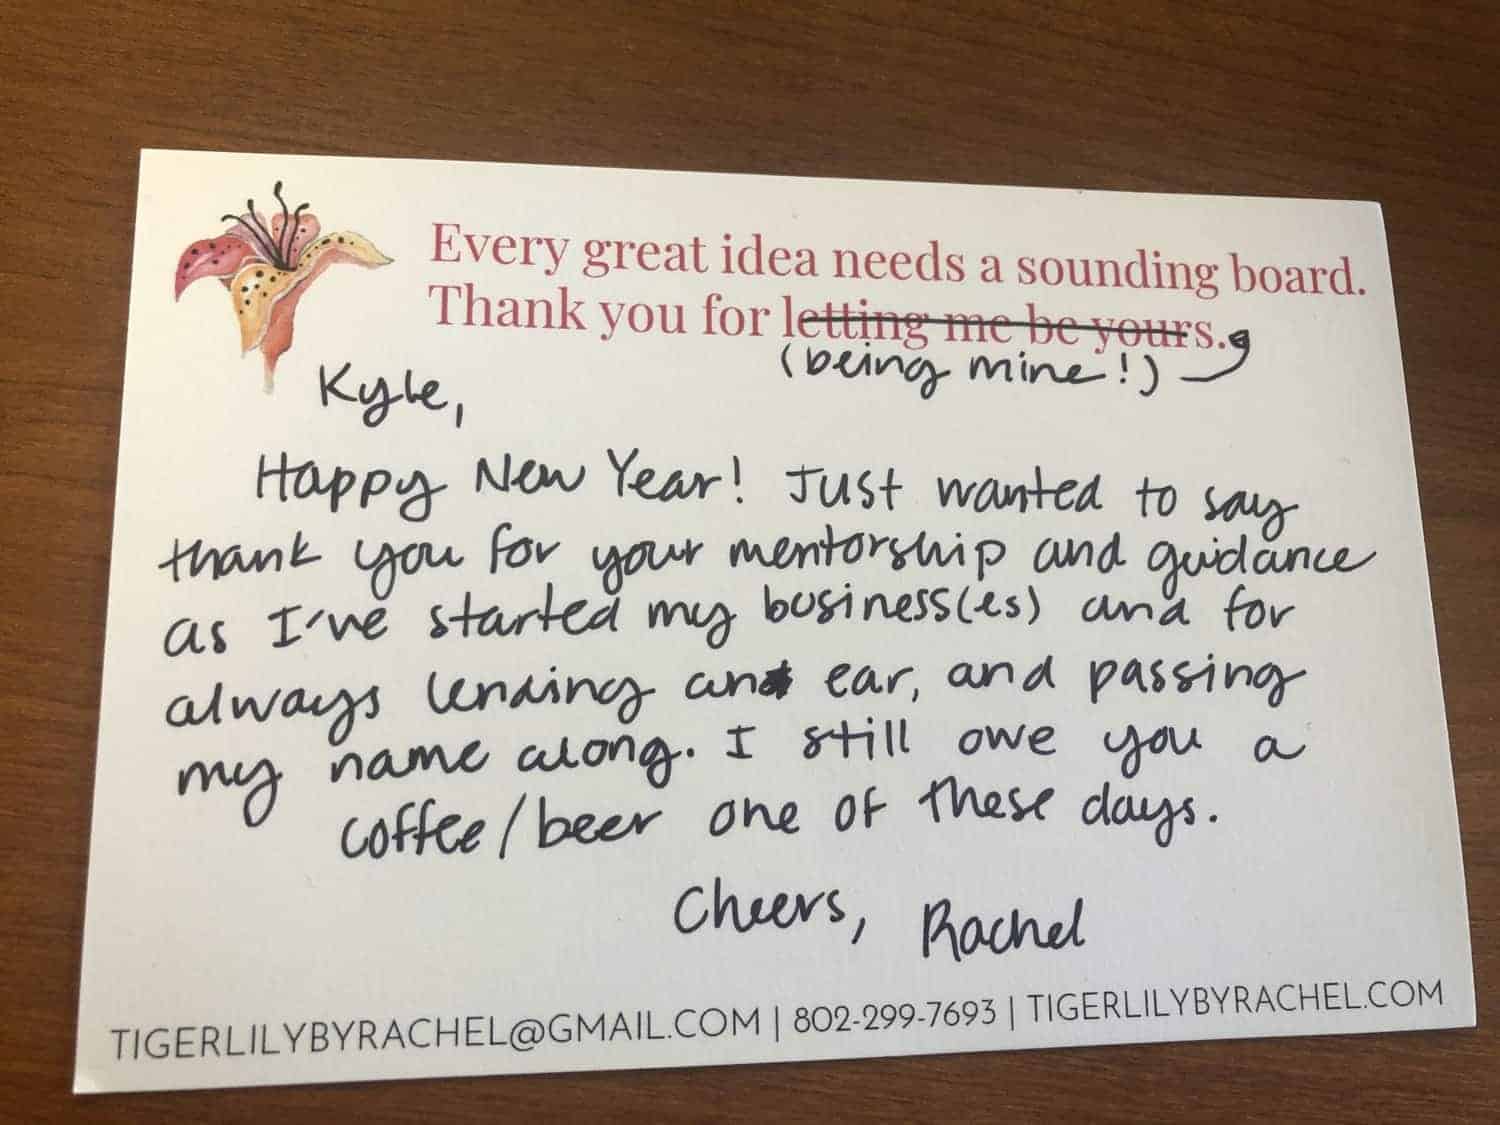 Every great idea needs a sounding board.
Thank you for letting me be yours.
(being mine!)
Kyle,
Happy New Year! Just wanted to say
thank you for your mentorship and guidance
as I've started my business(es) and for
always lending an ear, and passing
my name along. I still owe you a
coffee/beer one of these days.
Cheers, Rachel
TIGERLILYBYRACHEL@GMAIL.COM | 802-299-7693 | TIGERLILYBYRACHEL.COM